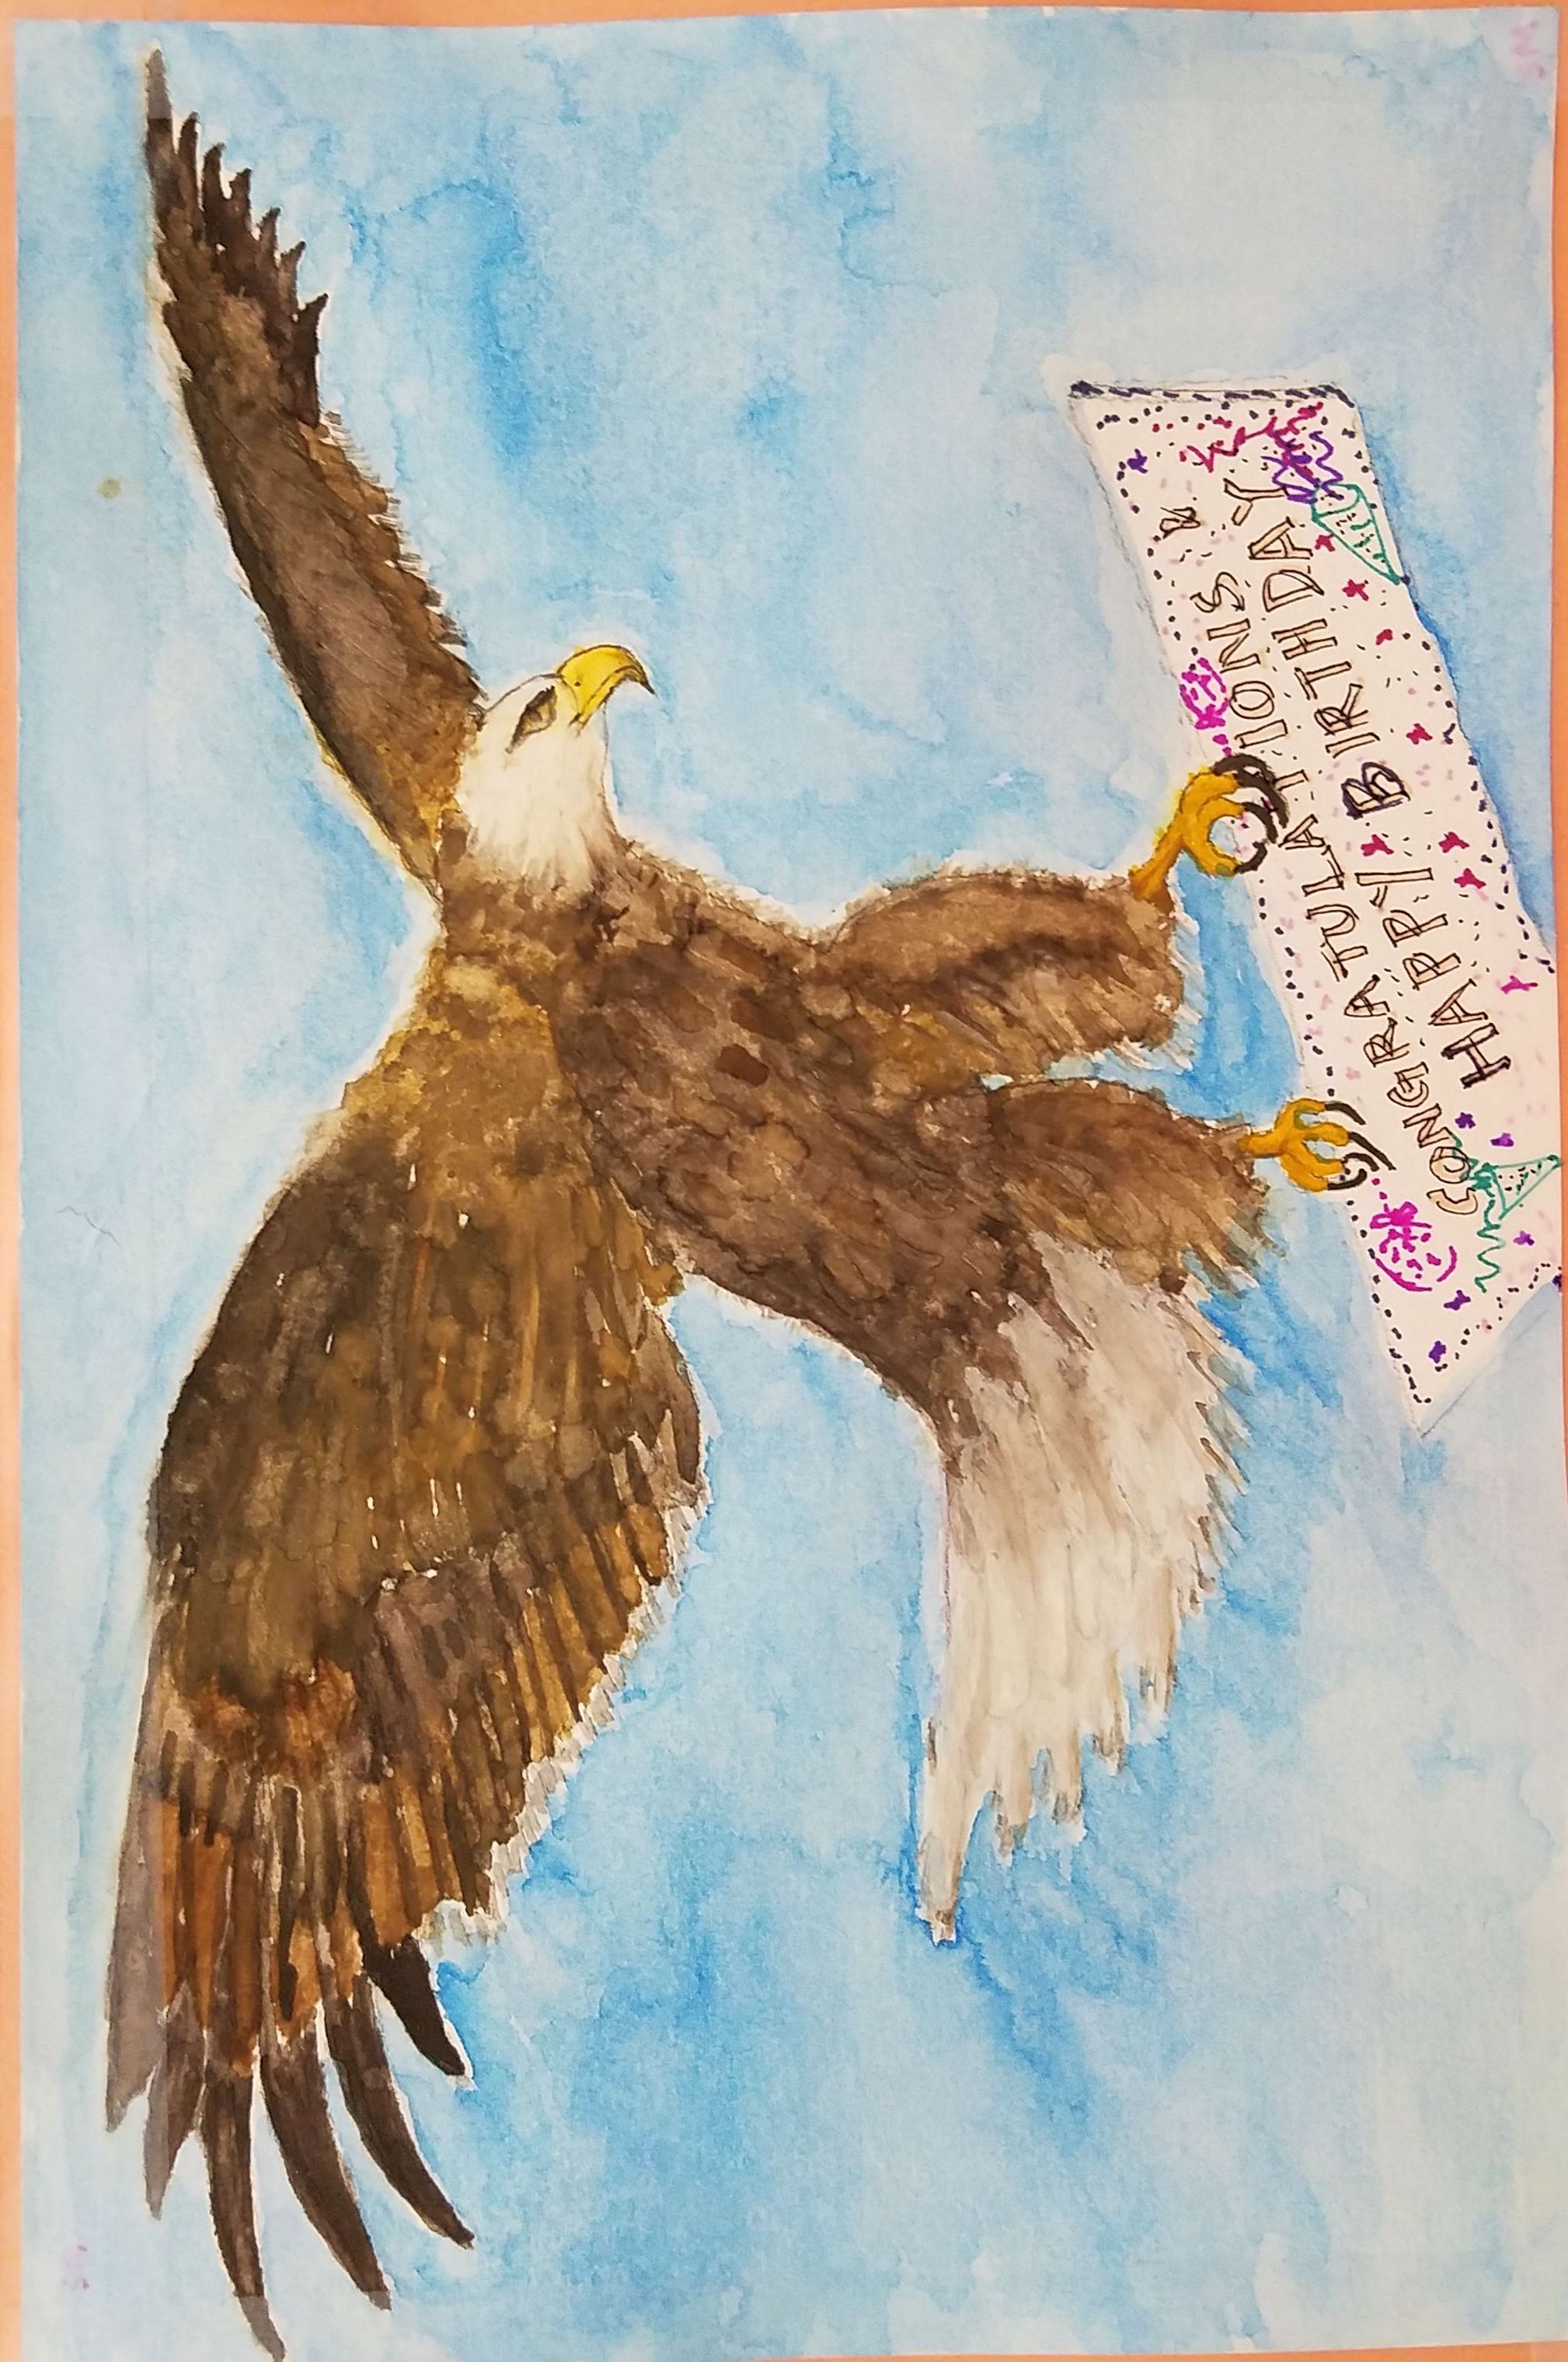 CONGRATULATIONS &
HAPPY BIRTHDAY